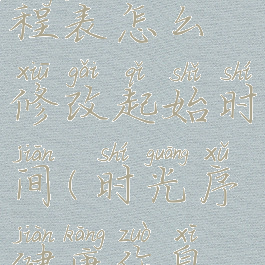 程表怎么
xiū gǎi qǐ shǐ shí
修改起始时
jiān shí guāng xù
间(时光序
jiàn kāng zuò xī
健康作息